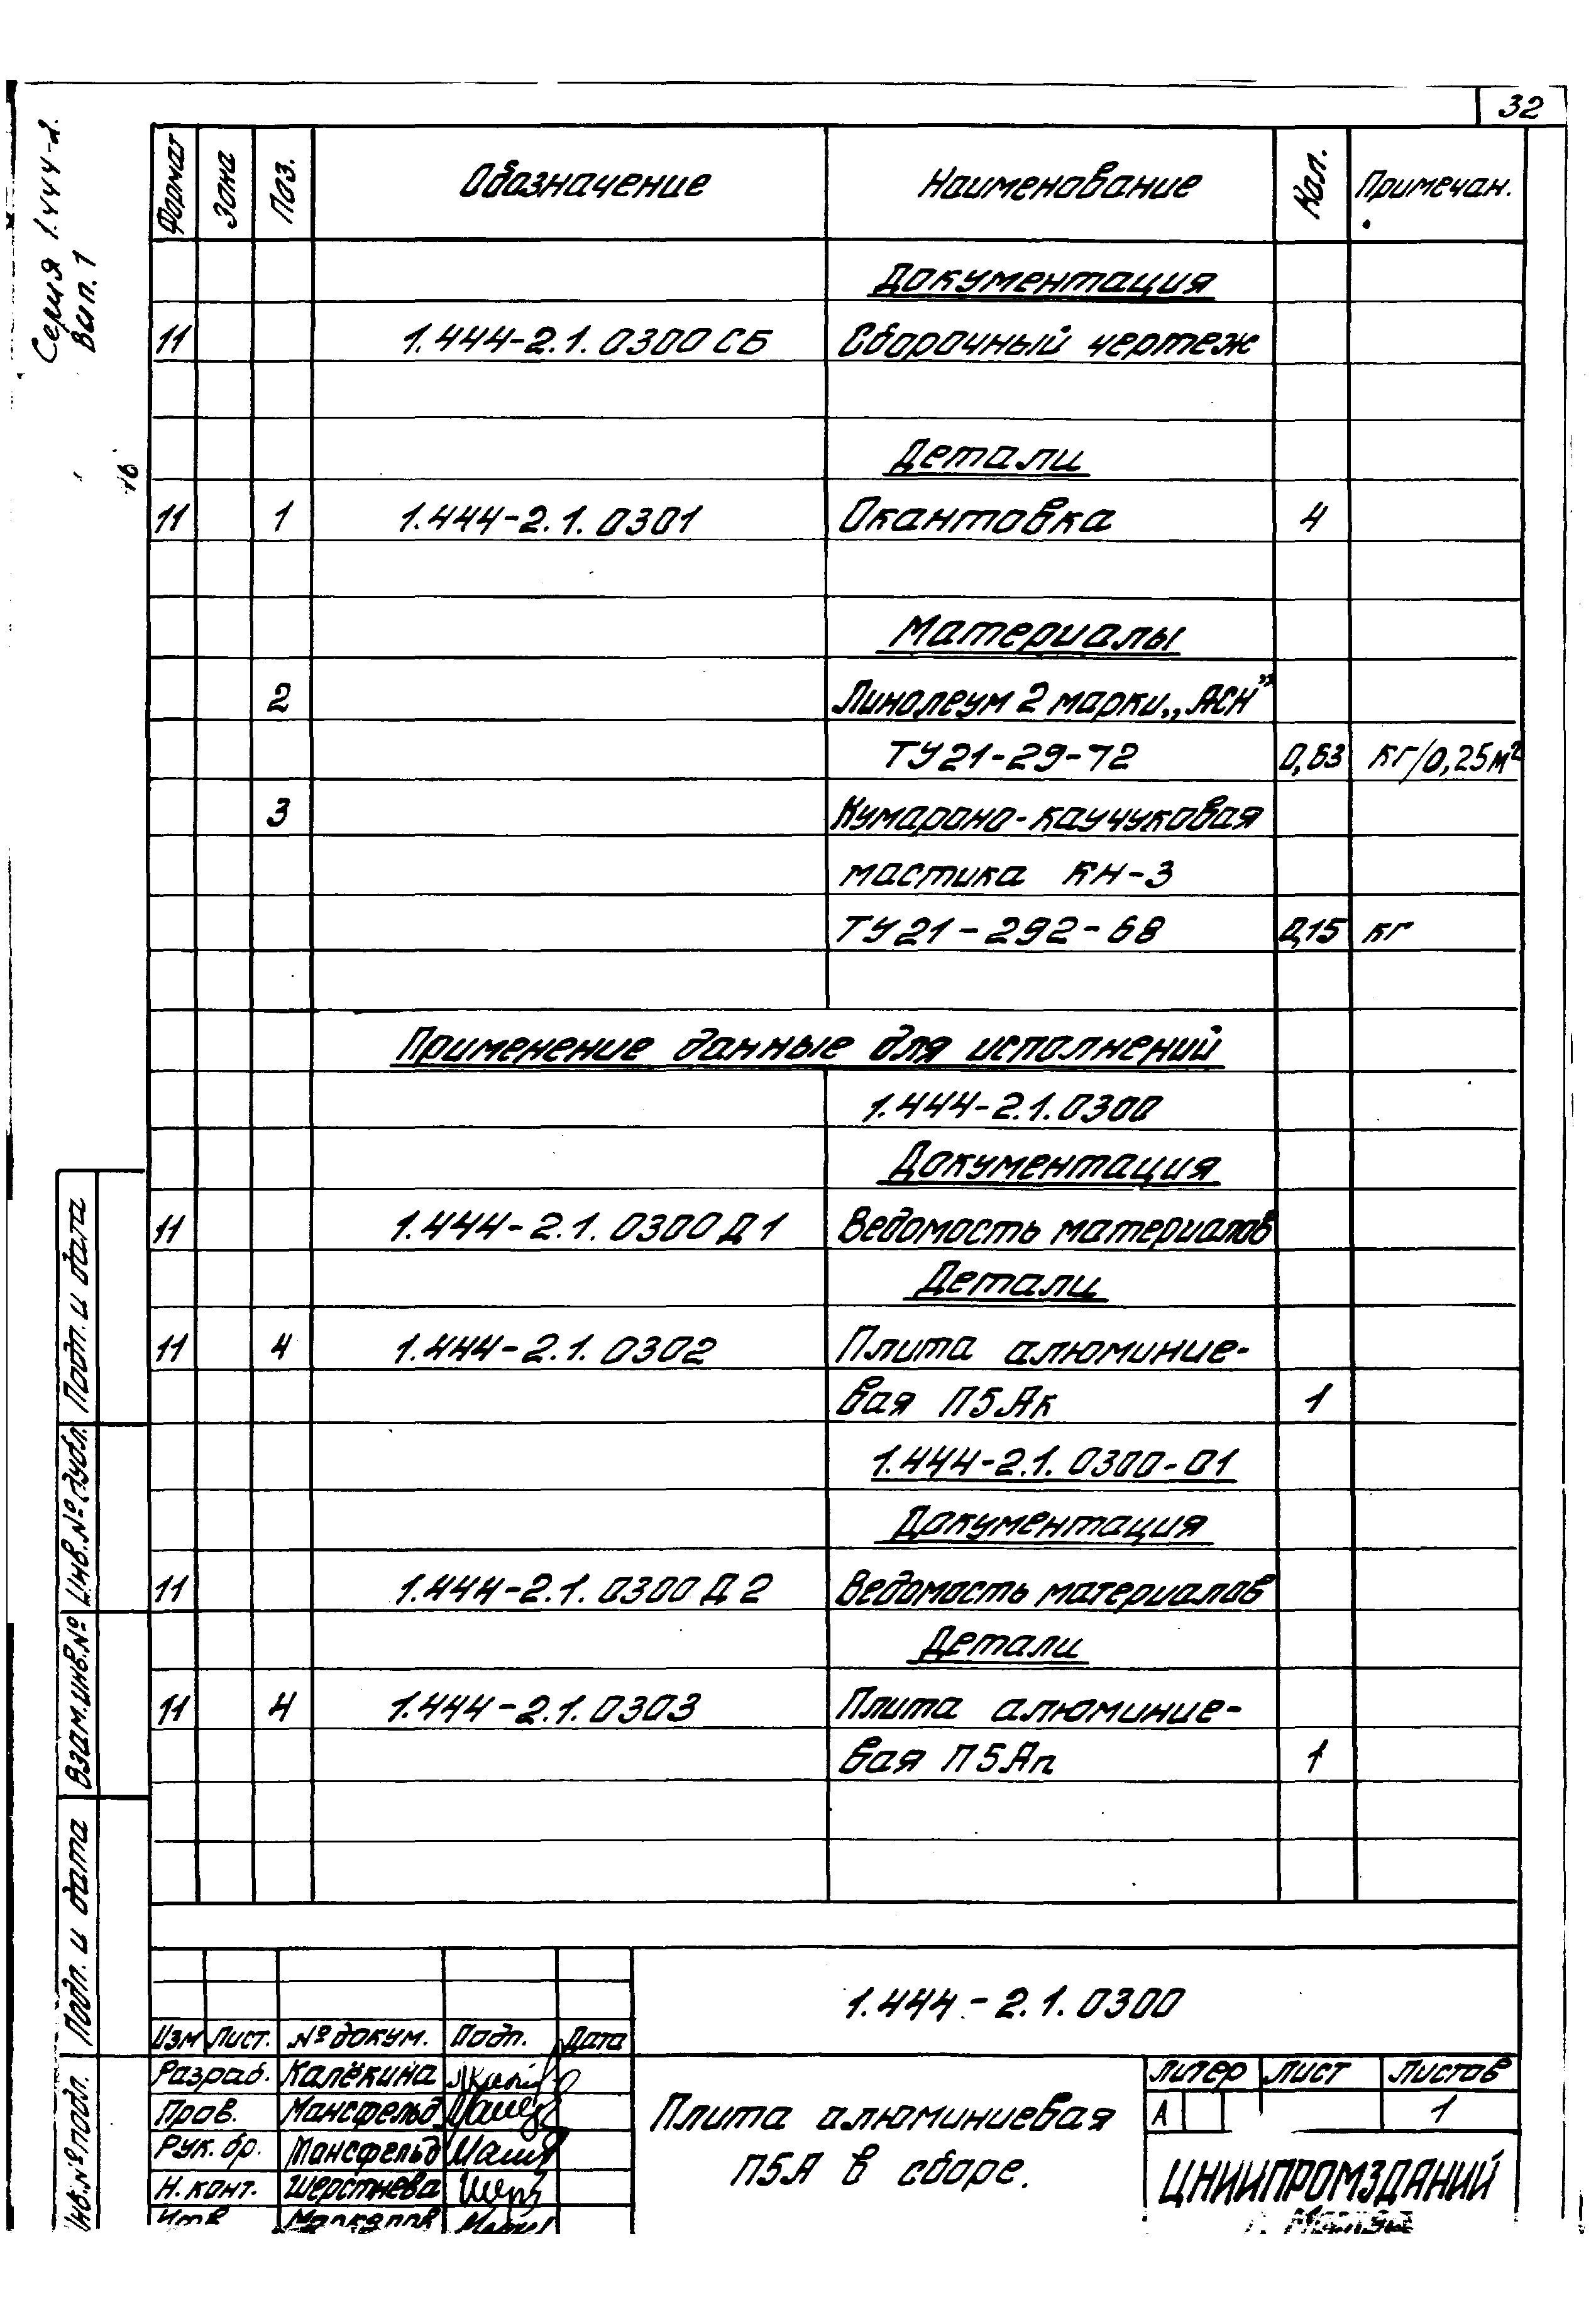 32
Серия 1.444-2.
Вып. 1
Формат Зона Поз. Обозначение Наименование Кол. Примечан.
Документация
11 1.444-2.1.0300 СБ Сборочный чертеж
Детали
11 1 1.444-2.1.0301 Окантовка 4
Материалы
2 Линолеум 2 марки „АСН"
ТУ21-29-72 0,63 кг/0,25м²
3 Кумароно-каучуковая
мастика КН-3
ТУ21-292-68 0,15 кг
Применение данные для исполнений
1.444-2.1.0300
Документация
11 1.444-2.1.0300 Д1 Ведомость материалов
Детали
11 4 1.444-2.1.0302 Плита алюминие-
вая П5Ак 1
1.444-2.1.0300-01
Документация
11 1.444-2.1.0300 Д2 Ведомость материалов
Детали
11 4 1.444-2.1.0303 Плита алюминие-
вая П5Ап 1
Подп. и дата
Инв.№ дубл.
Взам.инв.№
Подп. и дата
Инв.№ подл.
1.444-2.1.0300
Изм Лист. № докум. Подп. Дата
Разраб. Калёкина
Пров. Мансфельд
Рук. бр. Мансфельд
Н. конт. Шерстнева
Утв
Плита алюминиевая
П5А в сборе.
Литер Лист Листов
А 1
ЦНИИПРОМЗДАНИЙ
г. Москва